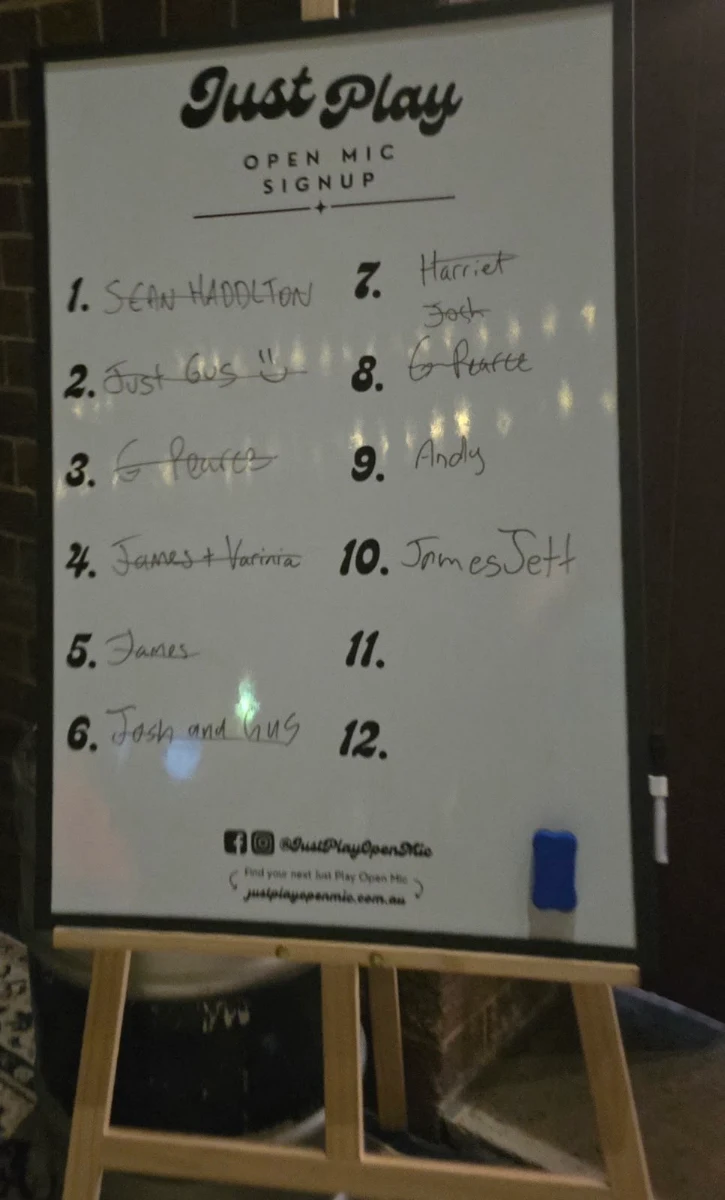 Just Play
OPEN MIC
SIGNUP
1. SEAN HADDLTON
2. Just Gus
3. G Pearce
4. James + Varinia
5. James
6. Josh and Gus
7. Harriet
Josh
8. G Pearce
9. Andy
10. James Jett
11.
12.
@JustPlayOpenMic
Find your next Just Play Open Mic
justplayopenmic.com.au